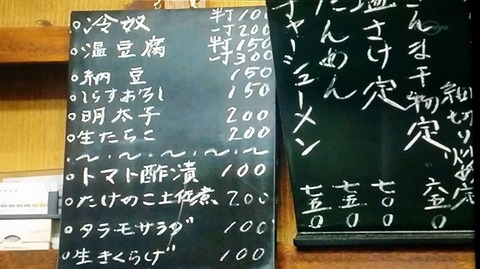 ○冷奴 半丁100
一丁200
○温豆腐 半丁150
一丁300
○納豆 150
○しらすおろし 150
○明太子 200
○生たらこ 200
○トマト酢漬 100
○たけのこ土佐煮 200
○タラモサラダ 100
○生きくらげ 100
細切り炒め定 六五〇
さんま干物定 六五〇
塩さけ定 七〇
たんめん 七五〇
チャーシューメン 七五〇